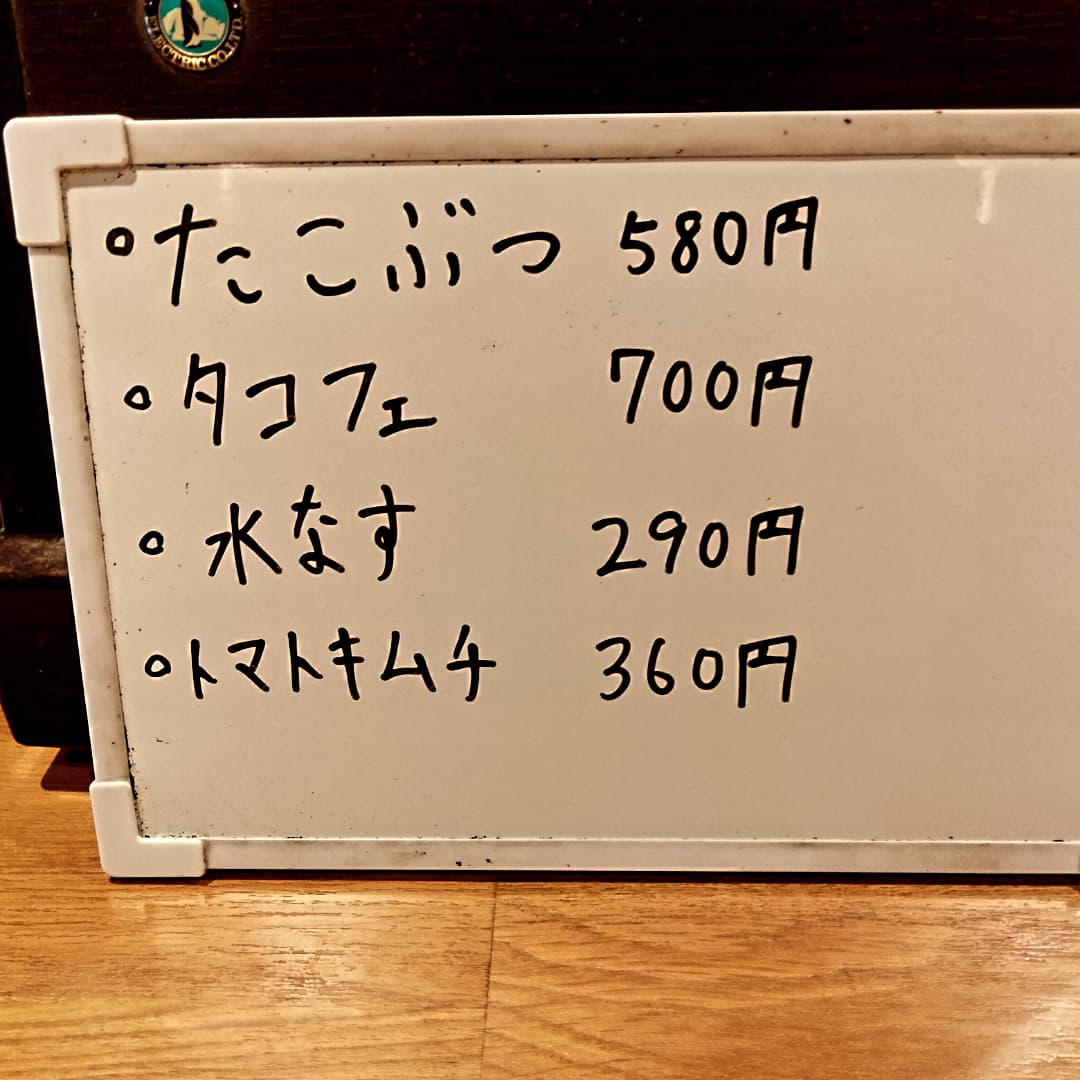 ELECTRIC CO.LTD.
。たこぶつ 580円
。タコフェ 700円
。水なす 290円
。トマトキムチ 360円